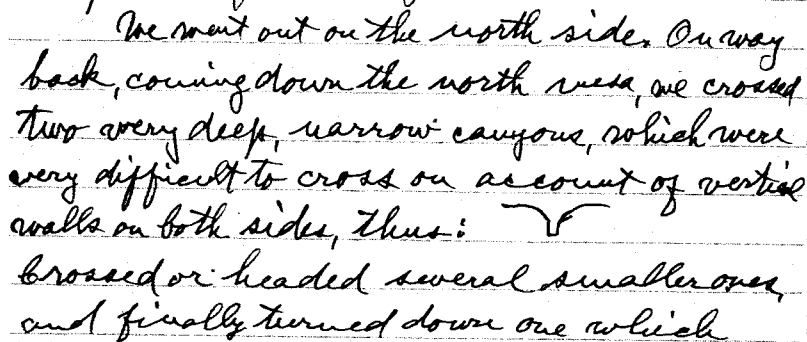 We went out on the north side. On way
back, coming down the north mesa, we crossed
two very deep, narrow canyons, which were
very difficult to cross on account of vertical
walls on both sides, thus:
Crossed or headed several smaller ones,
and finally turned down one which